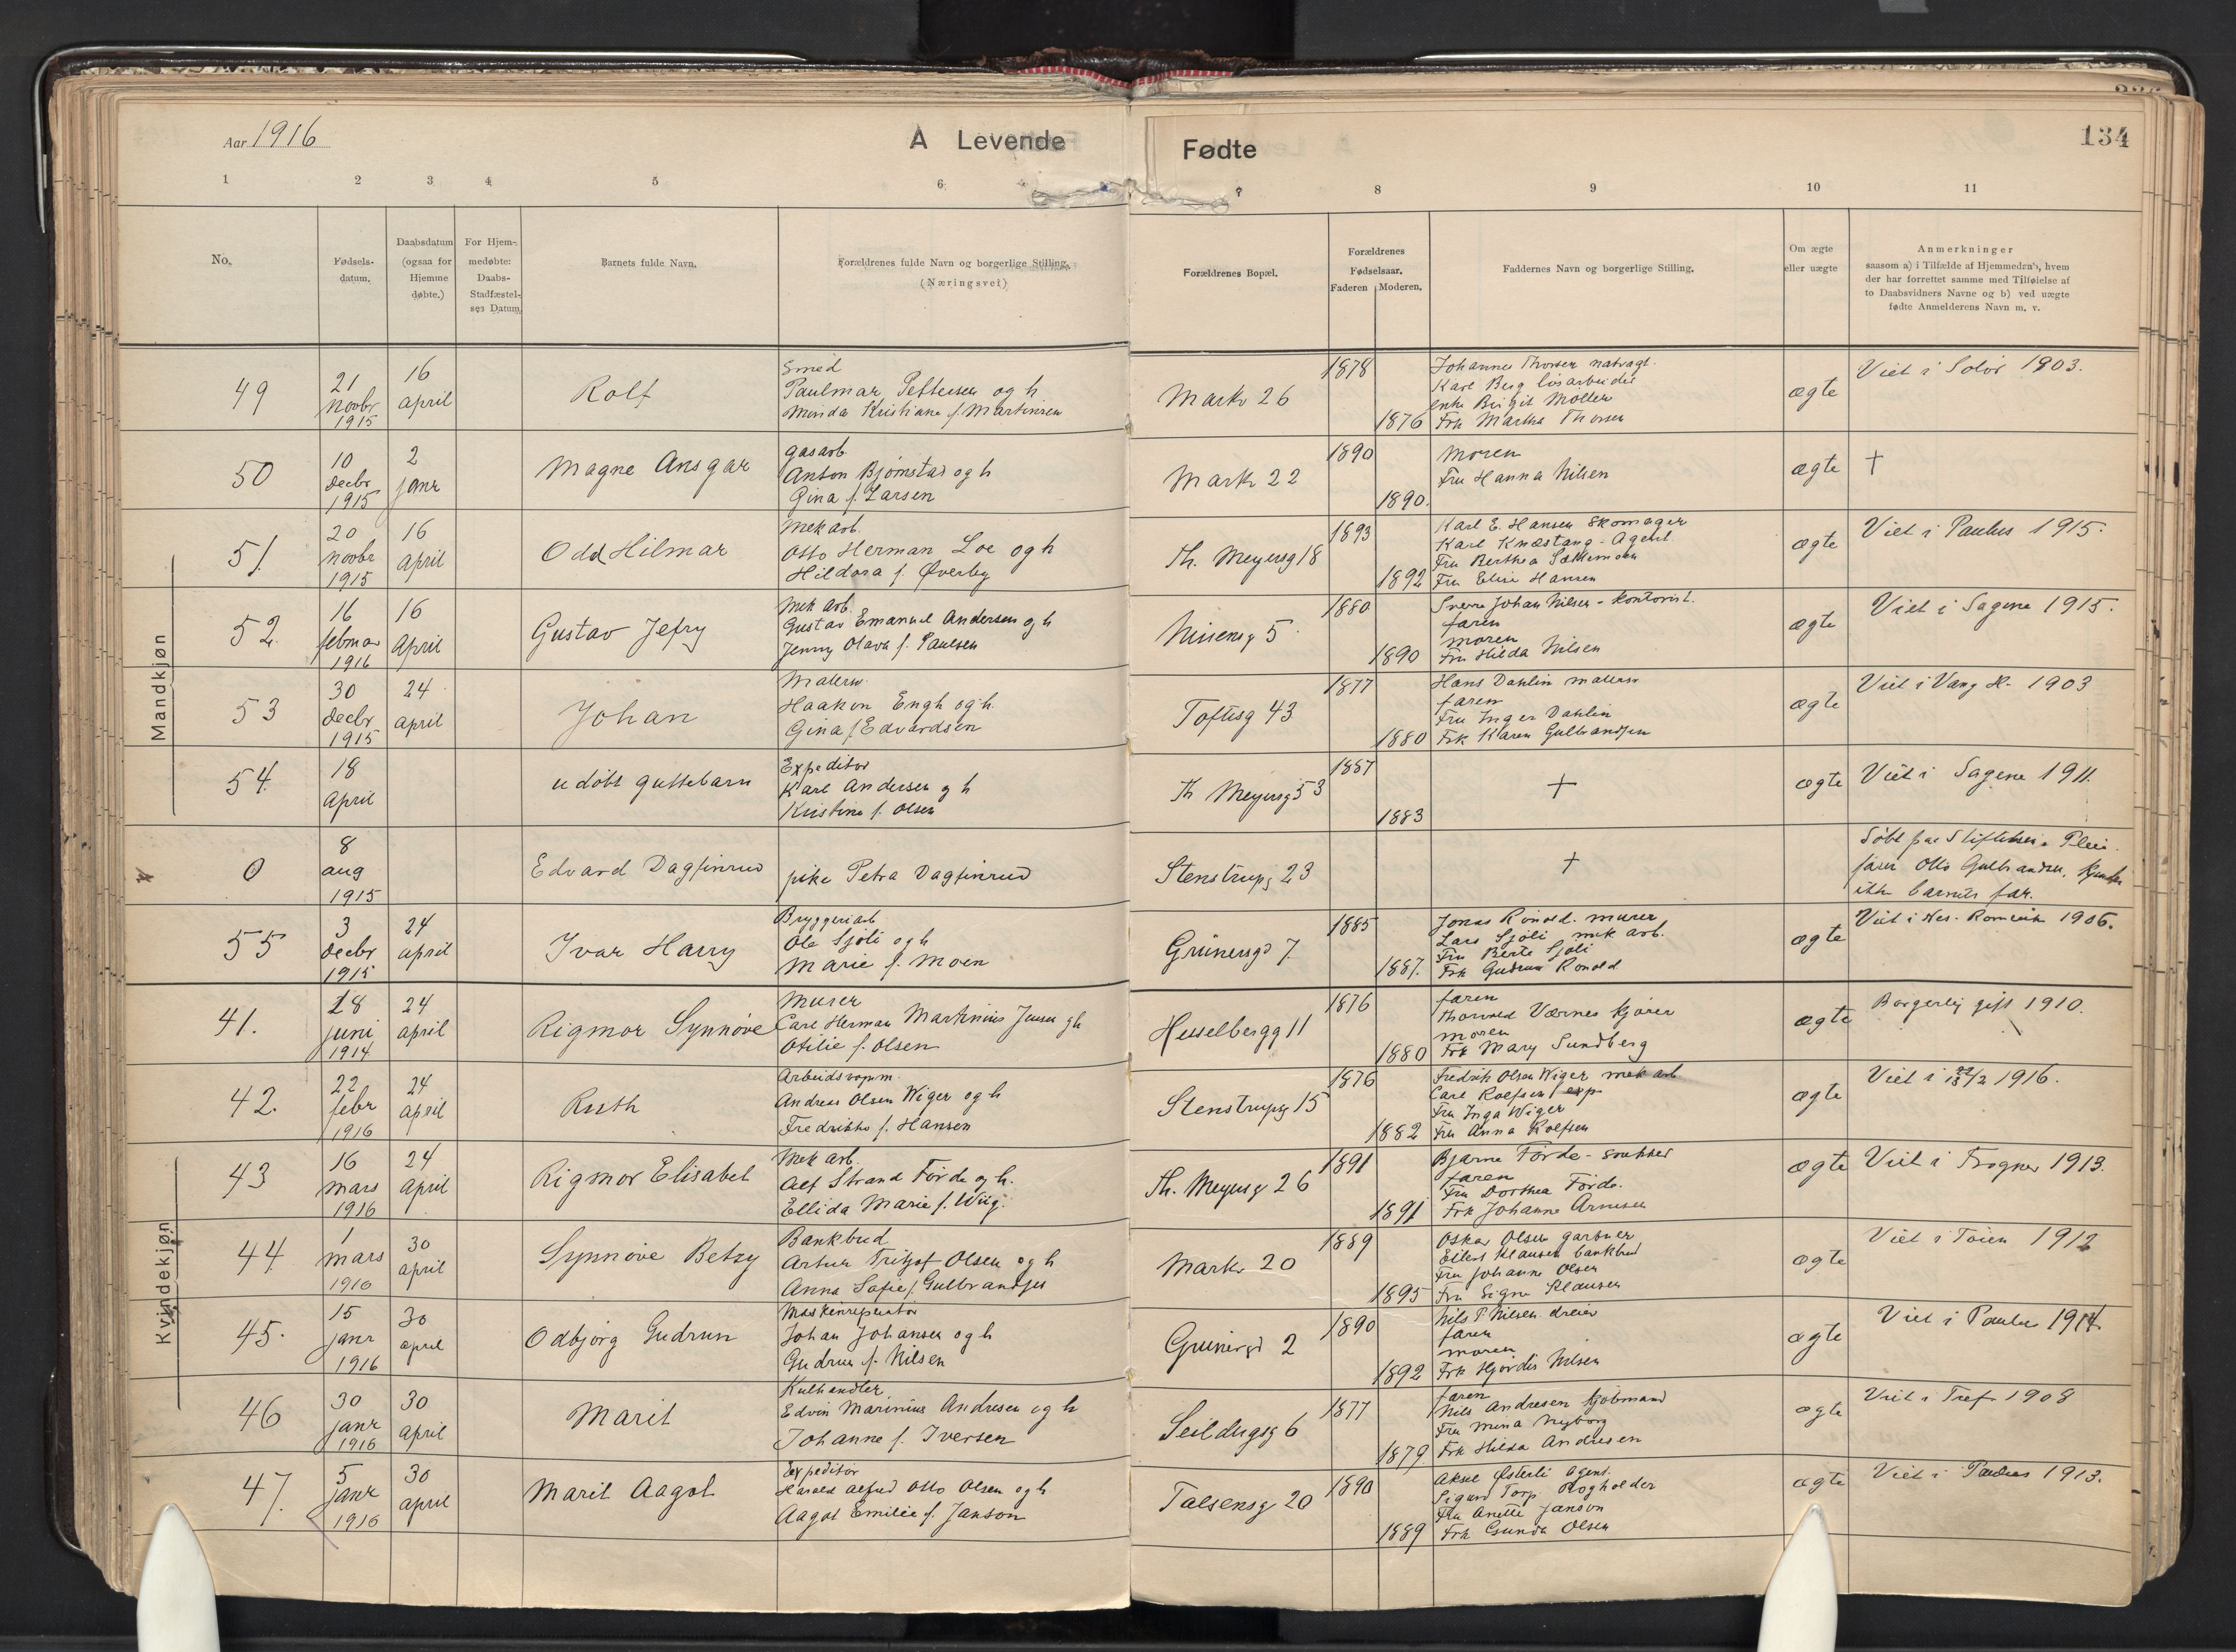 Aar 1916
A Levende
Fødte
134
1 2 3 4 5 6 7 8 9 10 11
No.
Fødsels-
datum.
Daabsdatum
(ogsaa for
Hjemme
døbte.)
For Hjem-
medøbte:
Daabs-
Stadfæstel-
ses Datum
Barnets fulde Navn.
Forældrenes fulde Navn og borgerlige Stilling.
(Næringsvei)
Forældrenes Bopæl.
Forældrenes
Fødselsaar.
Faderen Moderen.
Faddernes Navn og borgerlige Stilling.
Om ægte
eller uægte
Anmerkninger
saasom a) i Tilfælde af Hjemmedaab, hvem
der har forrettet samme med Tilføielse af
to Daabsvidners Navne og b) ved uægte
fødte Anmelderens Navn m. v.
Mandkjøn
49
21
Novbr
1915
16
april
Rolf
Smed
Paulmar Pettersen og h
Minda Kristiane f. Martinsen
Markv 26
1878
1876
Johannes Thorsen natvagt.
Karl Berg løsarbeider
enke Birgit Møller
Frk Martha Thorsen
ægte
Viet i Solør 1903.
50
10
decbr
1915
2
janr
Magne Ansgar
gasarb
Anton Bjørnstad og h
Gina f. Larsen
Markv 22
1890
1890.
Moren
Fru Hanna Nilsen
ægte
†
51.
20
novbr
1915
16
april
Odd Hilmar
Mek arb.
Otto Herman Loe og h
Hildora f. Øverby
Th. Meyersg 18
1893
1892
Karl E. Hansen Skomager
Karl Knæstang - Agent
Fru Berthea
Fru Elise Hansen
ægte
Viet i Paulus 1915.
52.
16
februar
1916
16
April
Gustav Jefry
Mek arb.
Gustav Emanuel Andersen og h
Jenny Olava f. Paulsen
Nissensg 5
1880
1890
Sverre Johan Nilsen - Kontorist.
faren
moren
Fru Hilda Nilsen
ægte
Viet i Sagene 1915.
53
30
decbr
1915
24
april
Johan
Malersv.
Haakon Engh og h.
Gina f Edvardsen
Toftesg 43
1877
1880
Hans Dahlin malersv
faren
Fru Inger Dahlin
Frk Karen Gulbrandsen
ægte
Viet i Vang H. 1903
54.
18
April
udøbt guttebarn
Expeditør
Karl Andersen og h
Kristine f. Olsen
Th Meyersg 53
1887
1883
†
ægte
Viet i Sagene 1911.
0
8
aug
1915
Edvard Dagfinrud
pike Petra Dagfinrud
Stenstrupg 23
†
Døbt paa Stiftelsen.
Otto Gulbrandsen.
ikke barnets far.
55
3
decbr
1915
24
april
Ivar Harry
Bryggeriarb
Ole Sjøli og h
Marie f. Moen
Grünersgd 7.
1885
1887.
Jonas Ronold. murer
Lars Sjøli mek arb.
Fru Berte Sjøli
Frk Gudrun Ronold
ægte
Viet i Nes. Romerike 1906.
41.
18
juni
1914
24
april
Rigmor Synnøve
Murer
Carl Herman Martinius Jensen og h
Otilie f. Olsen
Hesselbergg 11
1876
1880
faren
Thorvald Værnes kjører
moren
Frk Mary Sundberg
ægte
Borgerlig gift 1910.
42.
22
febr
1916
24
april
Ruth
Arbeidsvogm.
Andreas Olsen Wiger og h
Fredrikke f. Hansen
Stenstrupg 15
1876
1882
Fredrik Olsen Wiger mek arb
Carl Rolfsen exp
Fru Inga Wiger
Fru Anna Rolfsen
ægte
Viet i 1916.
Kvindekjøn
43
16
mars
1916
24
april
Rigmor Elisabet
Mek arb.
Alf Strand Førde og h.
Ellida Marie f. Wiig.
Th. Meyersg 26
1891
1891
Bjarne Førde -
faren
Fru Dorthea Førde.
Frk Johanne Arnesen
ægte
Viet i Frogner 1913.
44
1
mars
1916
30
april
Synnøve Betzy
Bankbud
Artur Fritjof Olsen og h
Anna Sofie f. Gulbrandsen
Markv 20
1889
1895
Oskar Olsen gartner
Eilert Klausen bankbud
Fru Johanne Olsen
Fru Signe Klausen
ægte
Viet i Tøien 1912
45.
15
janr
1916
30
april
Odbjørg Gudrun
Maskenreperatør
Johan Johansen og h
Gudrun f. Nilsen
Grünersgd 2
1890
1892
Nils P Nilsen dreier
faren
moren
Frk Hjørdis Nilsen
ægte
Viet i Paulus 1914.
46
30
janr
1916
30
april
Marit
Kulhandler
Edvin Marinius Andresen og h
Johanne f. Iversen
Seildugsg 6
1877
1879
faren
Nils Andresen kjøbmand
Fru Mina Nyborg
Frk Hilda Andresen
ægte
Viet i Tref. 1908
47.
5
janr
1916
30
april
Marit Aagot
Expeditør
Harald Alfred Otto Olsen og h
Aagot Emilie f. Janson
Falsensg 20
1890
1889
Aksel Østerli Agent.
Sigurd Torp Bogholder
Fru Anette Janson
Frk Gunda Olsen
ægte
Viet i Paulus 1913.